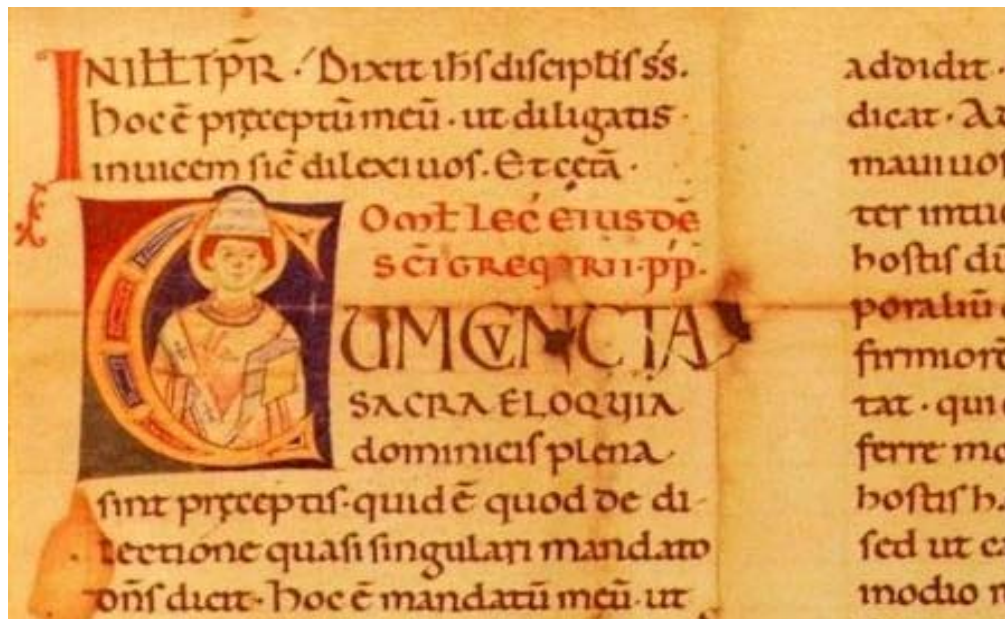 IN ILLĪ TP̄R · Dixit ih̄s discipłis s̄s.
hoc ē pręceptū meū · ut diligatis ·
inuicem sic̄ dilexi uos. Et cet̄a ·
Omł Lec̄ eiusdē
sc̄i gregorii · p̄p̄.
CUM CVNCTA
SACRA ELOQUIA
dominicis plena
sint pręceptis · quid ē quod de di-
lectione quasi singulari mandato
dn̄s dicit · hoc ē mandatū meū · ut
addidit ·
dicat ·
maui uos
ter
hostis
poraliū
tat · qui
ferre
hostis
sed ut
modio